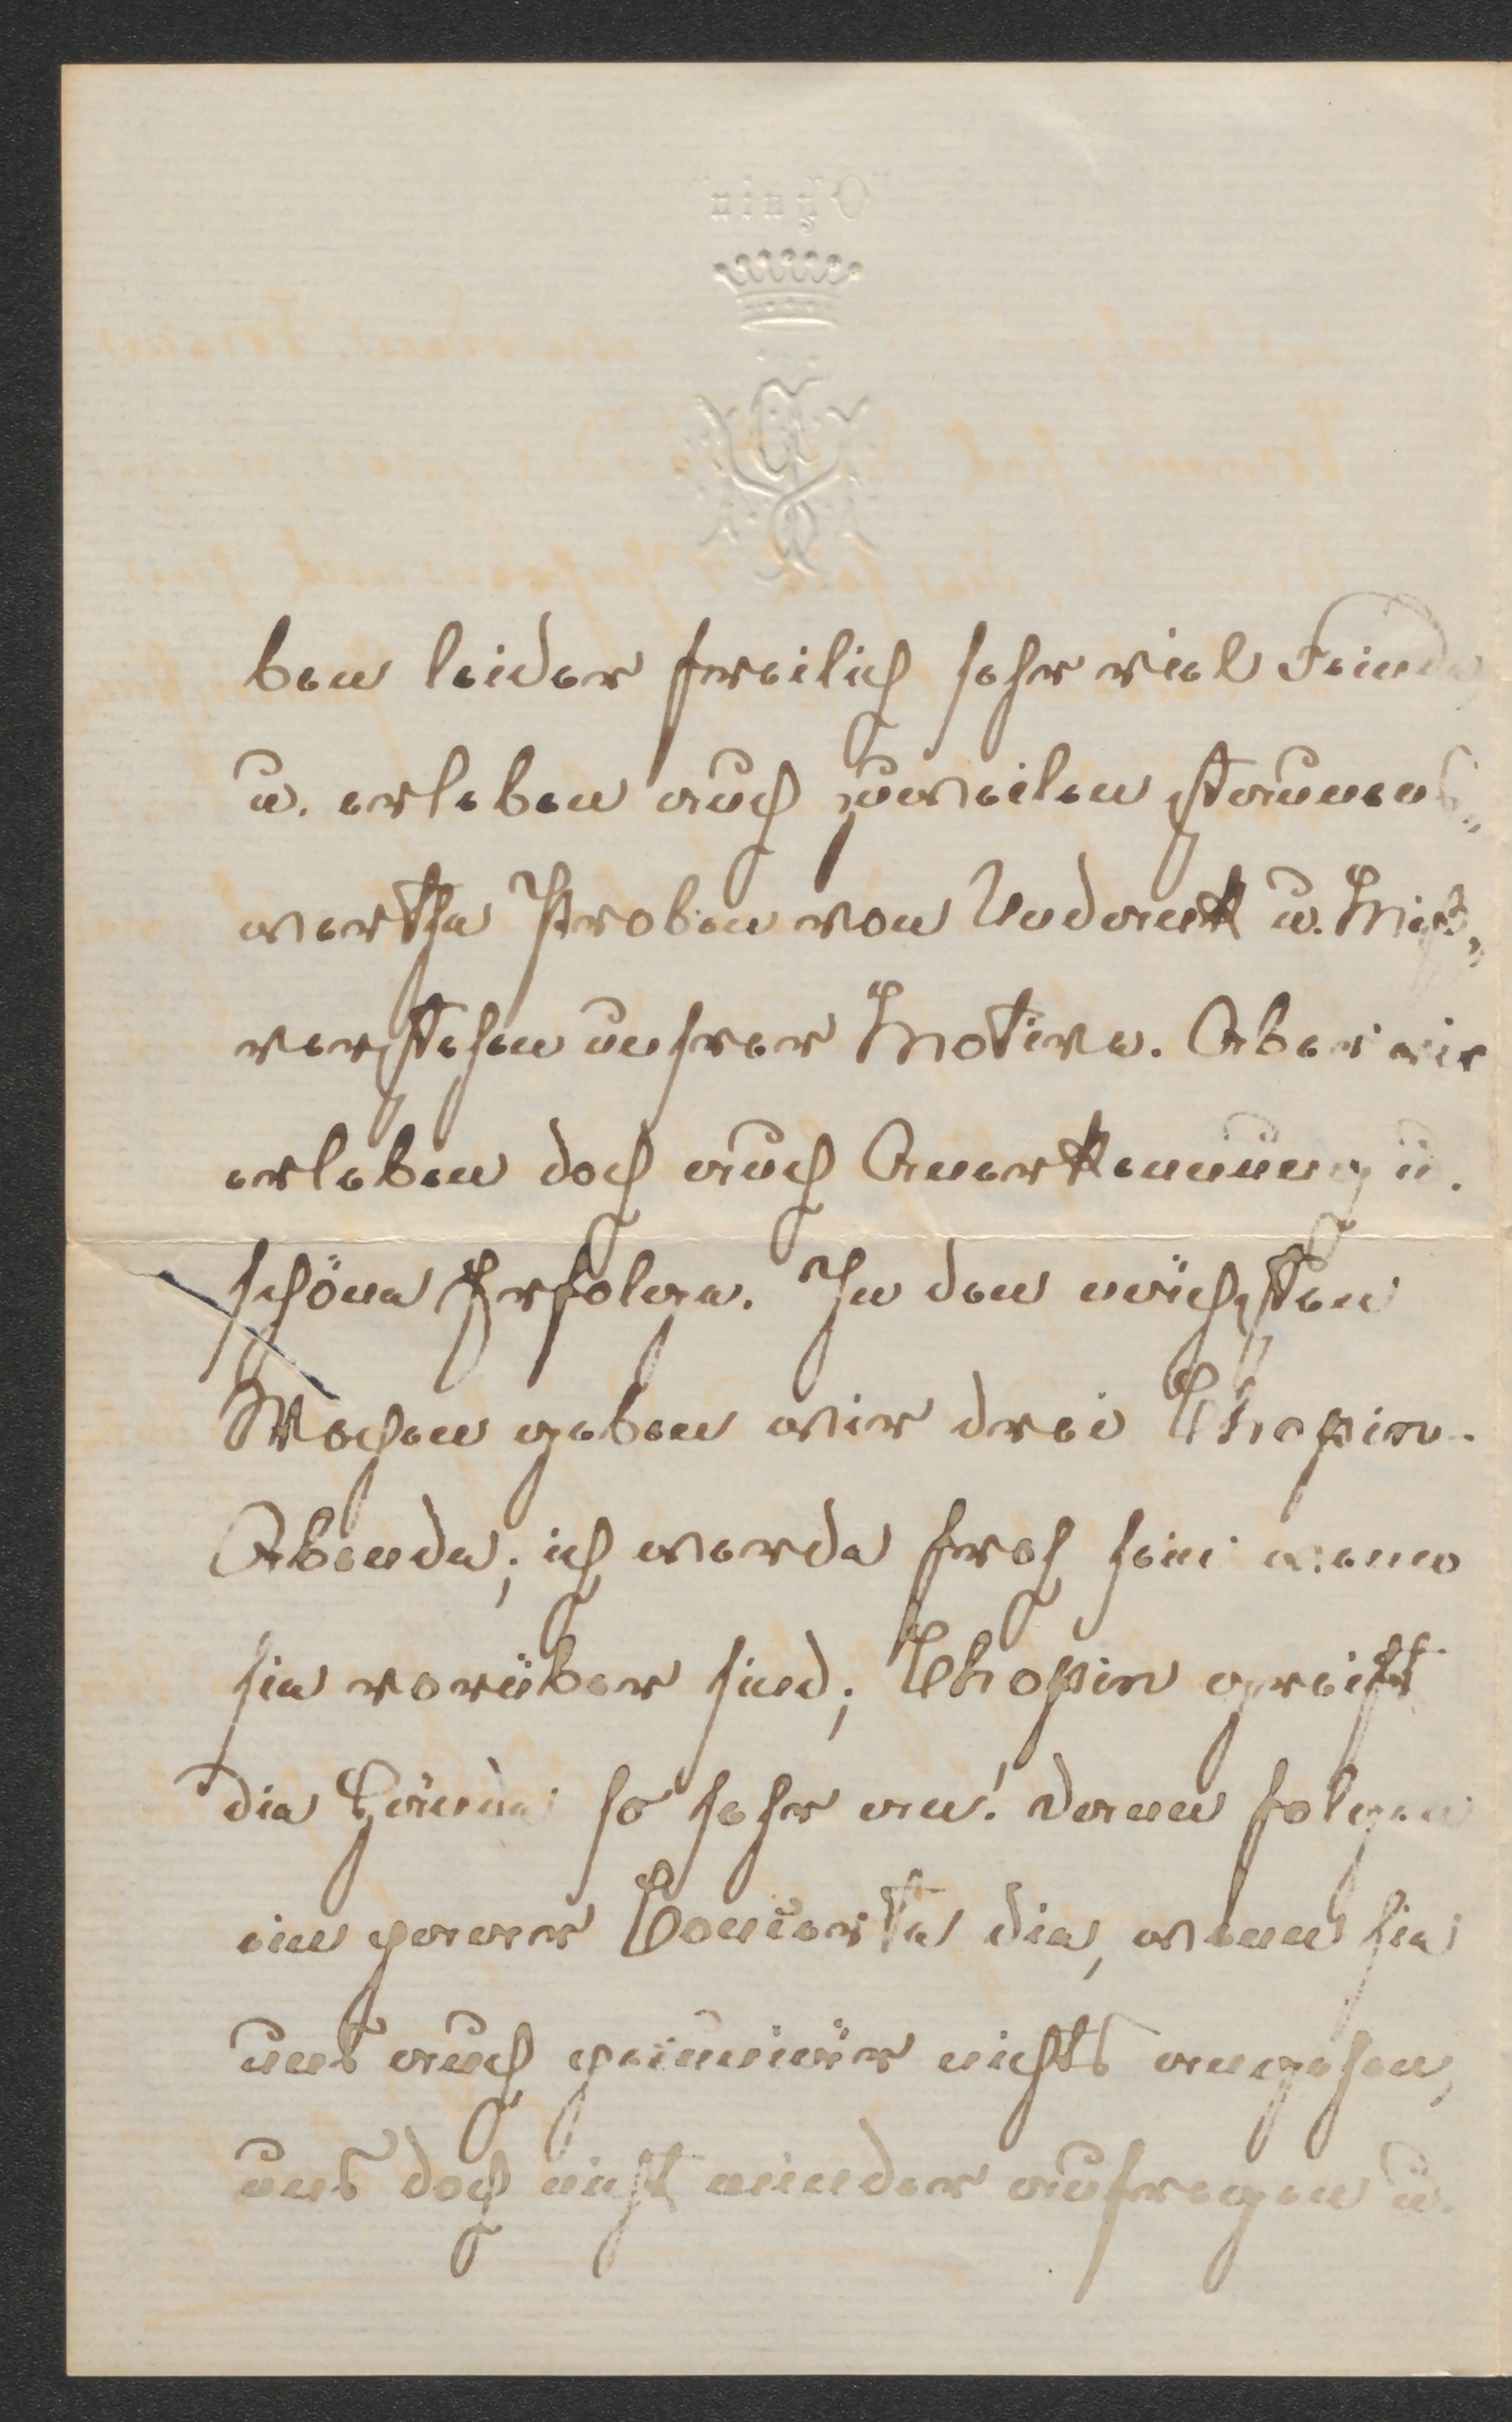 ben leider freilich sehr viel Feinde,
u. erleben auch zuweilen staunens„
werthe Proben von Undank u. Miß„
verstehen unsrer Motive. Aber wir
erleben doch auch Anerkennung u.
schöne Erfolge. In den nächsten
Wochen geben wir drei Chopin-
Abende; ich werde froh sein wenn
sie vorüber sind; Chopin greift
die Hände so sehr an! Dann folgen
ein paar Concerte die, wenn sie
uns auch peiniär nichts angehen,
uns doch nicht minder aufregen u.